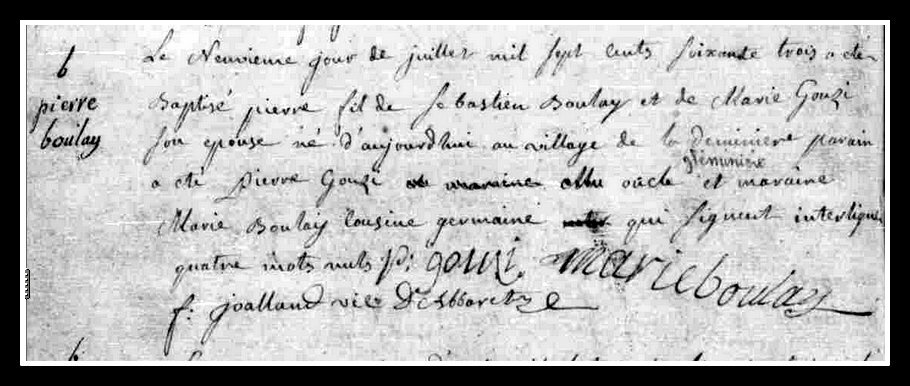 b
pierre
boulay
Le Neuvieme jour de juillet mil sept cents soixante trois a eté
Baptisé pierre fil de sebastien Boulay et de Marie Gouzi
son epouse né d'aujourdhui au village de la parain
a eté pierre Gouzi oncle et maraine
Marie Boulay Cousine germaine qui signent interligne
quatre mots nuls P: gouzi. marie boulay
f: Joalland vic: D'abbaretz